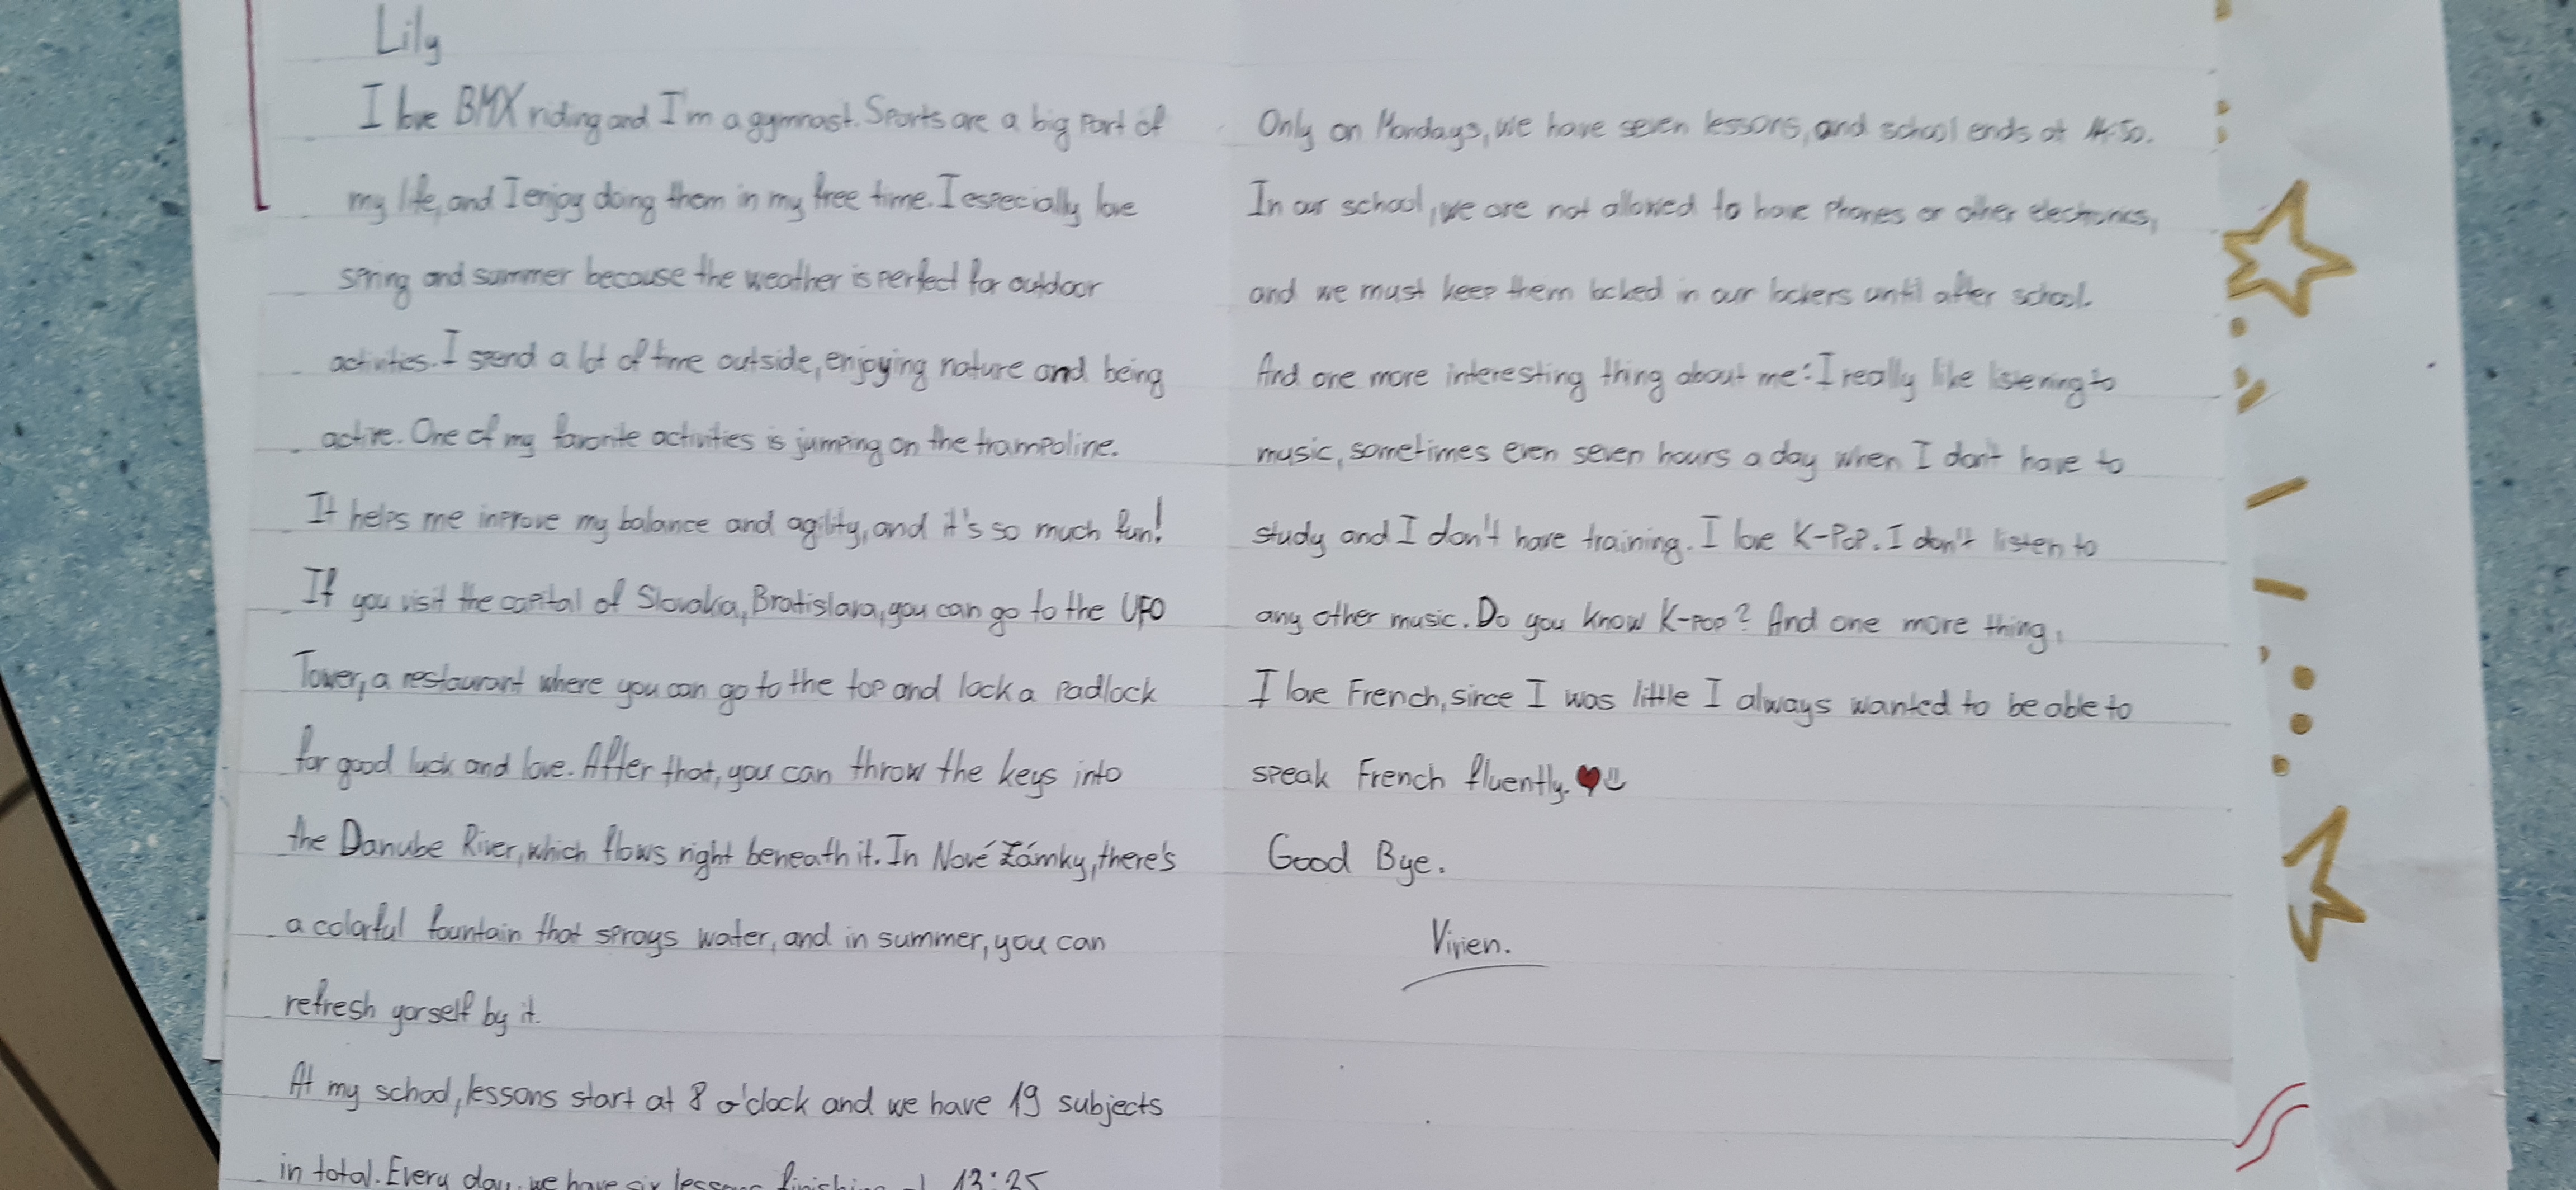 Lily
I love BMX riding and I'm a gymnast. Sports are a big part of
my life, and I enjoy doing them in my free time. I especially love
spring and summer because the weather is perfect for outdoor
activities. I spend a lot of time outside, enjoying nature and being
active. One of my favorite activities is jumping on the trampoline.
It helps me inprove my balance and agility, and it's so much fun!
If you visit the capital of Slovaka, Bratislava, you can go to the UFO
Tower, a restaurant where you can go to the top and lock a padlock
for good luck and love. After that, you can throw the keys into
the Danube River, which flows right beneath it. In Nové Zámky, there's
a colorful fountain that sprays water, and in summer, you can
refresh yorself by it.
At my school, lessons start at 8 o'clock and we have 19 subjects
in total. Every day, we have six lessons finishing at 13:25
Only on Mondays, we have seven lessons, and school ends at 14:50.
In our school, we are not allowed to have phones or other electronics,
and we must keep them locked in our lockers until after school.
And one more interesting thing about me: I really like listening to
music, sometimes even seven hours a day when I don't have to
study and I don't have training. I love K-Pop. I don't listen to
any other music. Do you know K-pop? And one more thing,
I love French, since I was little I always wanted to be able to
speak French fluently.
Good Bye.
Vivien.